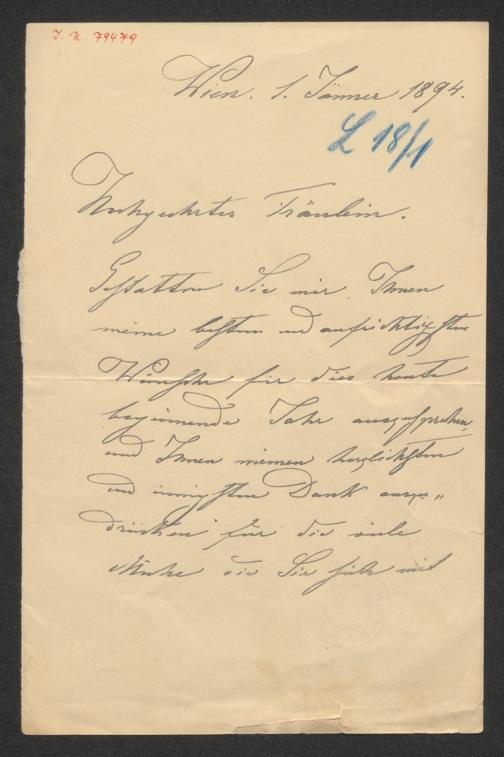 J. N. 79479
Wien. 1. Jänner 1894.
L 18/1
Hochgeehrtes Fräulein.
Gestatten Sie mir Ihnen
meine besten und aufrichtigsten
Wünsche für dies heute
beginnende Jahr auszusprechen,
und Ihnen meinen herzlichsten
und innigsten Dank auszu„
drücken für die viele
Mühe die Sie sich mit